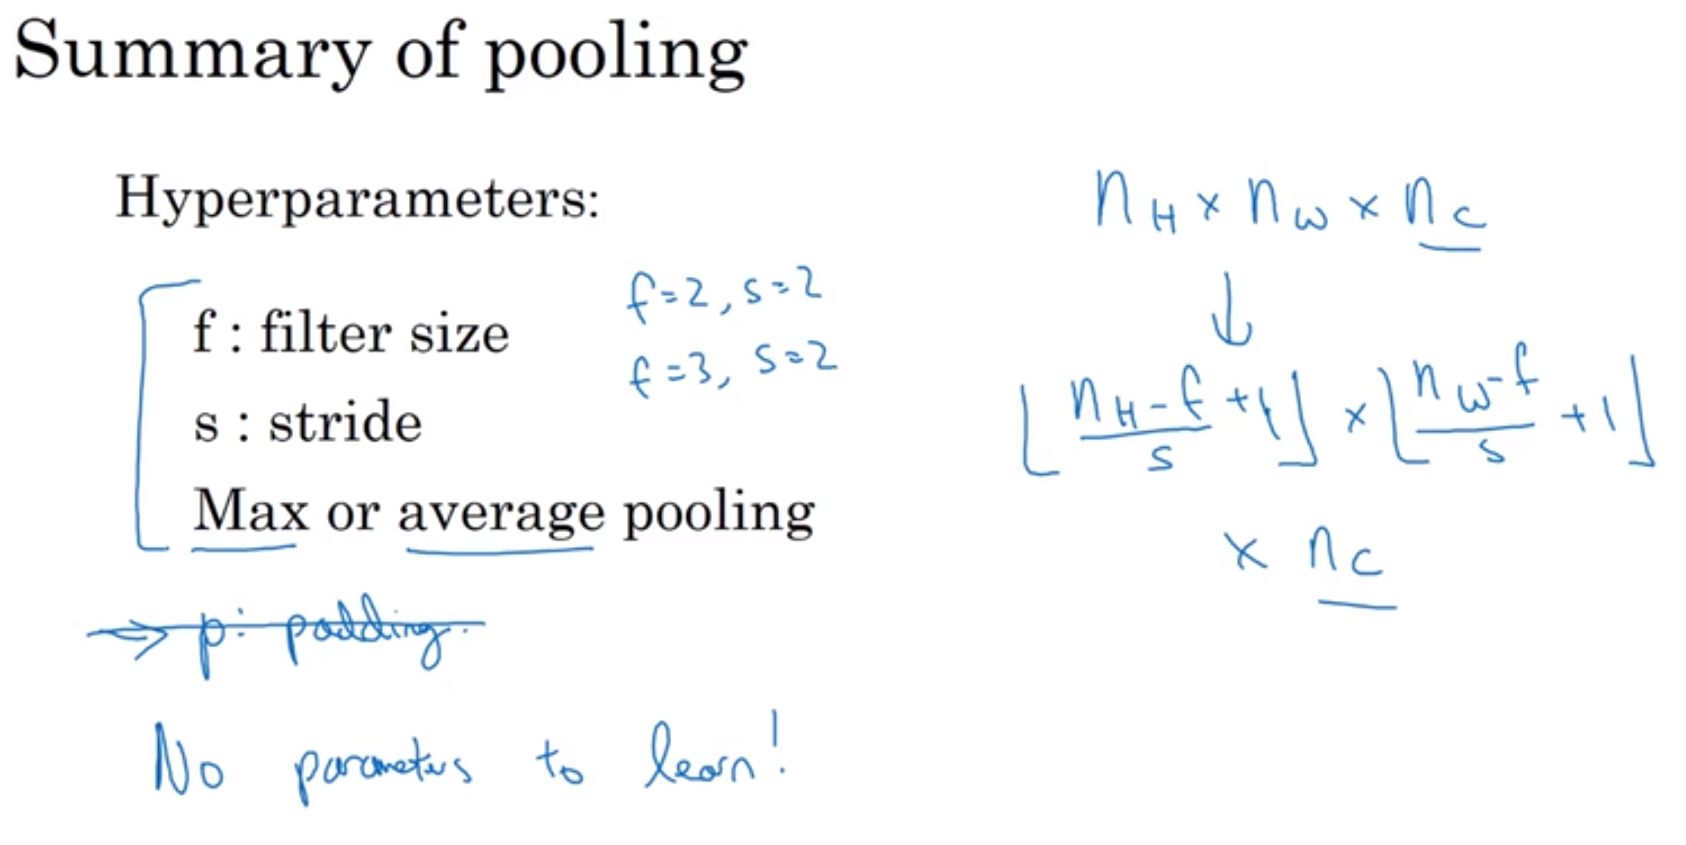 Summary of pooling
Hyperparameters:
f : filter size
s : stride
Max or average pooling
f=2, s=2
f=3, s=2
⇒ p: padding.
No parameters to learn!
n_H × n_W × n_C
↓
⌊(n_H - f)/s + 1⌋ × ⌊(n_W - f)/s + 1⌋
× n_C